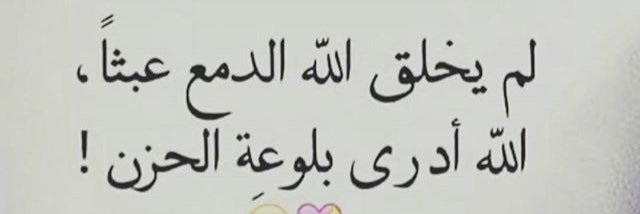 لم يخلق الله الدمع عبثاً،
الله أدرى بلوعةِ الحزن !